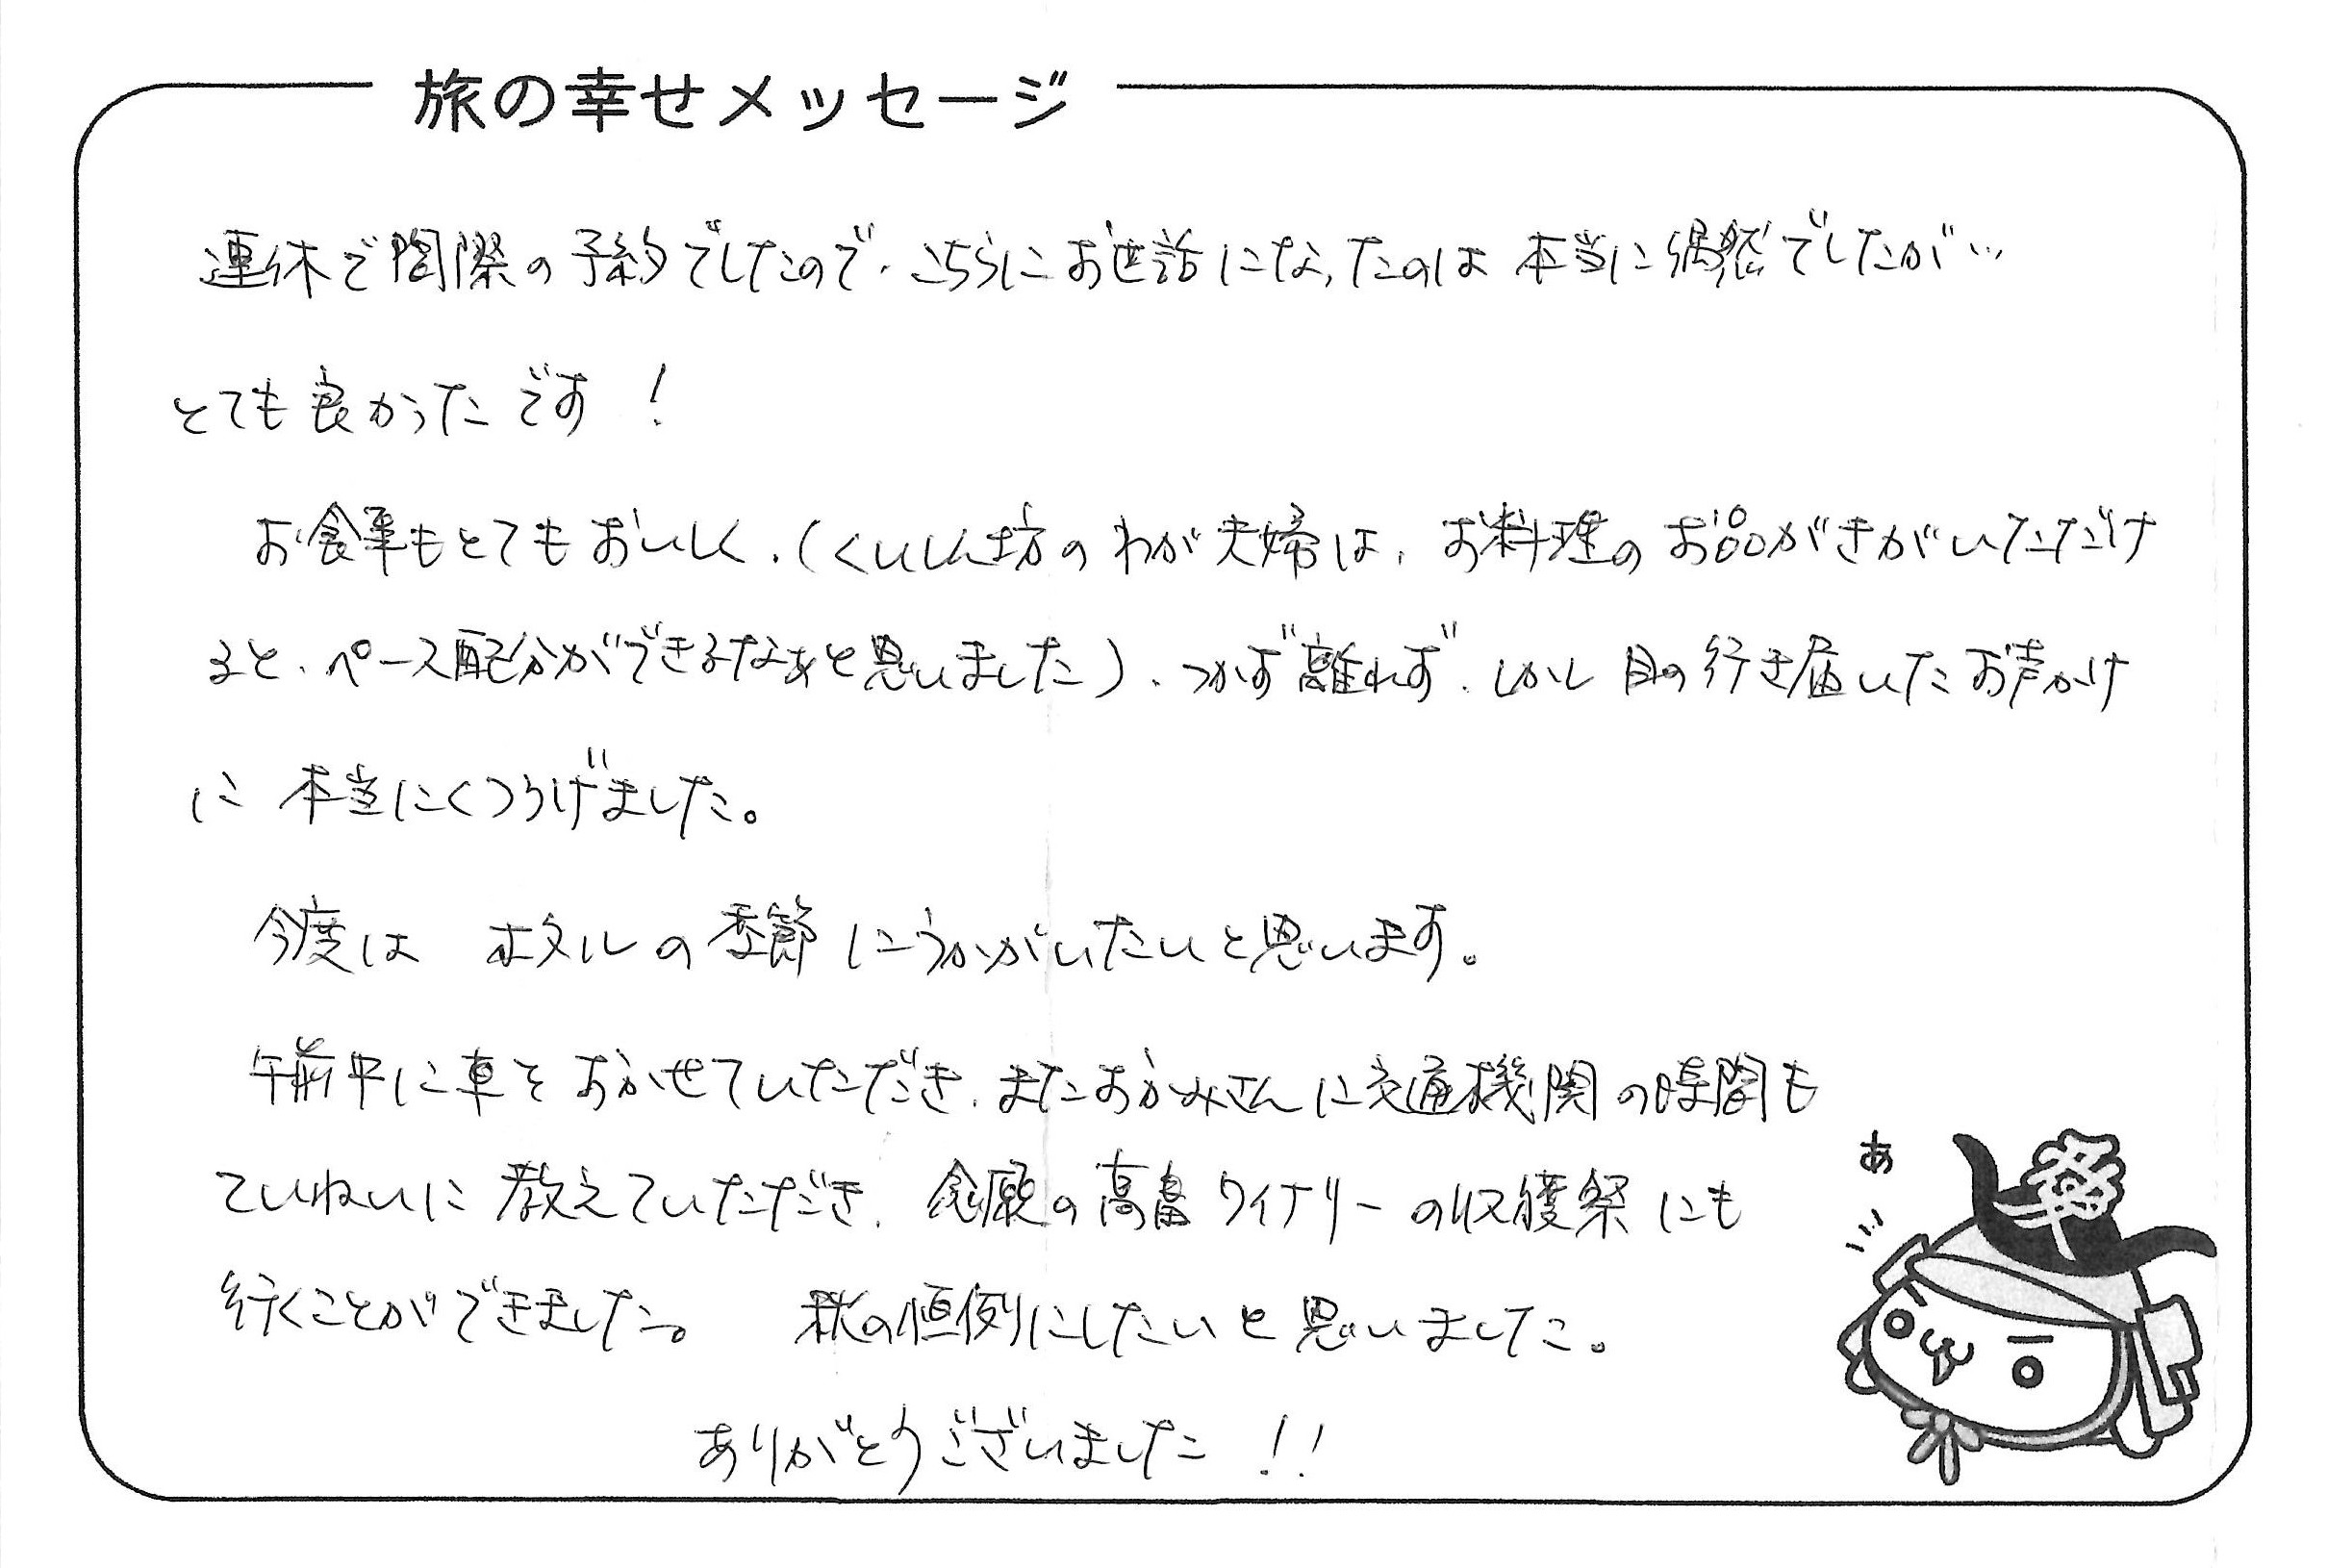 旅の幸せメッセージ
連休で間際の予約でしたので、こちらにお世話になったのは 本当に偶然でしたが…
とても良かったです！
お食事もとてもおいしく、(くいしん坊のわが夫婦は、お料理のお品がきがいただけ
ると、ペース配分ができるなぁと思いました)、つかず離れず、しかし目の行き届いたお声かけ
に 本当にくつろげました。
今度は ホタルの季節にうかがいたいと思います。
午前中に車をおかせていただき、またおかみさんに交通機関の時間も
ていねいに 教えていただき、念願の高畠ワイナリーの収穫祭にも
行くことができました。 秋の恒例にしたいと思いました。
ありがとうございました！！
あ